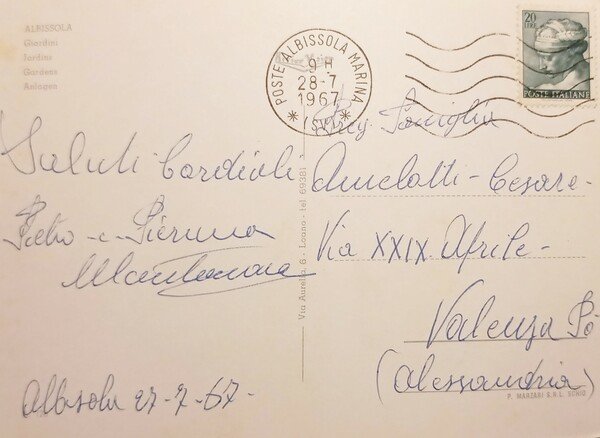 ALBISSOLA
Giardini
Jardins
Gardens
Anlagen
POSTE ALBISSOLA MARINA
9 H
28-7
1967
* (SV) *
20
LIRE
POSTE ITALIANE
Saluti Cordiali
Pietro - e - Pierina
Albisola 27-7-67-
Via Aurelia, 6 - Loano - tel. 69381
Famiglia
Amelotti - Cesare -
Via XXIX Aprile -
Valenza Po
(Alessandria)
P. MARZARI S.R.L. SCHIO